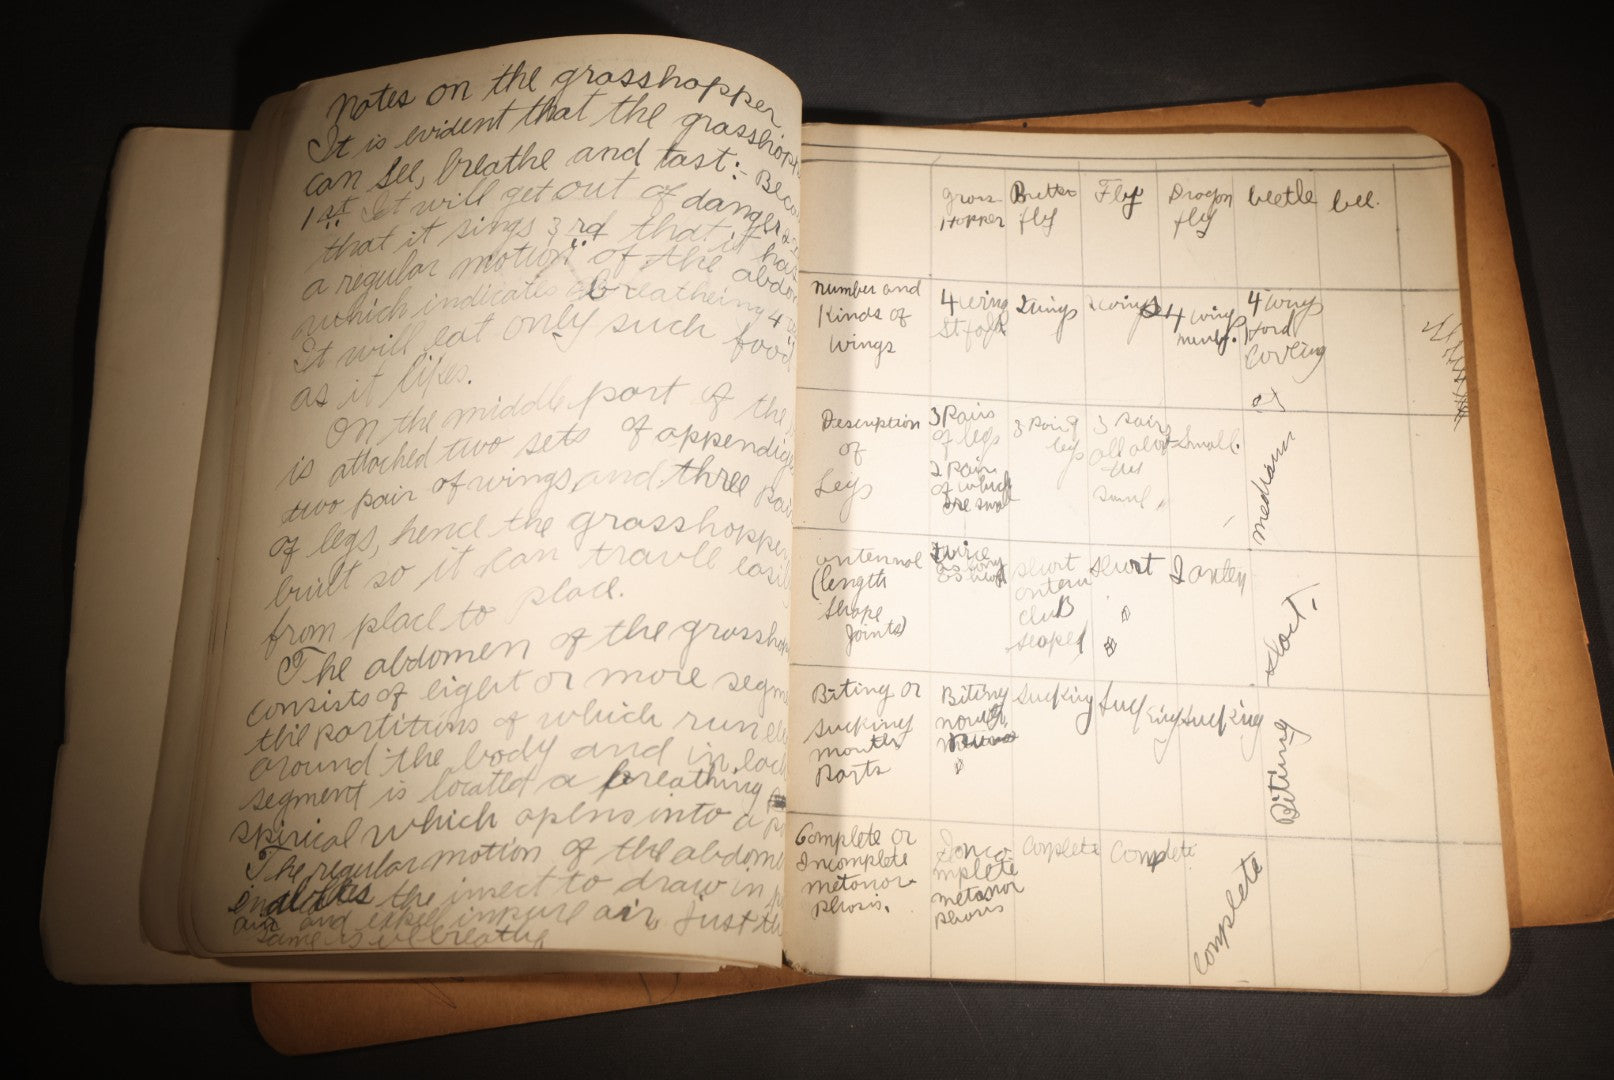 Notes on the grasshopper.
It is evident that the grasshop
can see, breathe and tast:- Beca
1st. It will get out of danger
that it sings 3rd that it has
a regular motion of the abdo
which indicates breatheing 4
It will eat only such food
as it likes.
On the middle part of the
is attached two sets of appendige
two pair of wings, and three pair
of legs, hence the grasshopper
built so it can travle easil
from place to place.
The abdomen of the grassho
consists of eight or more segm
the partitions of which run
around the body and in each
segment is located a breathing
spirical which opens into a
The regular motion of the abdome
enables the insect to draw in p
air and expell impure air, just the
same as we breathe
grass Butter Fly Dragon beetle bee.
Hopper fly fly
number and
Kinds of
wings
4 wing
2 wings
2 wings
4 wing
4 wings
Hard
Covering
Description
of
Legs
3 Pairs
of legs
2 Pair
of which
are small
3 Pairs
legs
3 Pairs
all about
small.
medium
antennal
(length
shape
joints)
twice
as long
short
club
short
short.
Biting or
sucking
mouth
Parts
Biting
mouth
sucking
sucking
sucking
Biting
Complete or
Incomplete
metamor-
phosis.
Inco
mplete
metamor
phosis
Complete
Complete
Complete